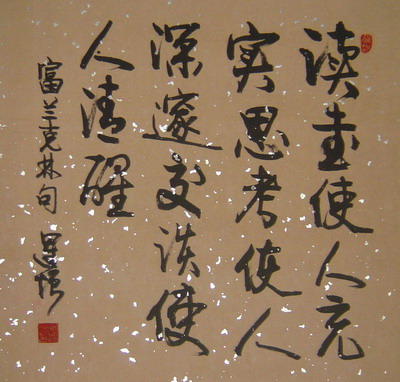 读書使人充
实思考使人
深邃交谈使
人清醒
富兰克林句